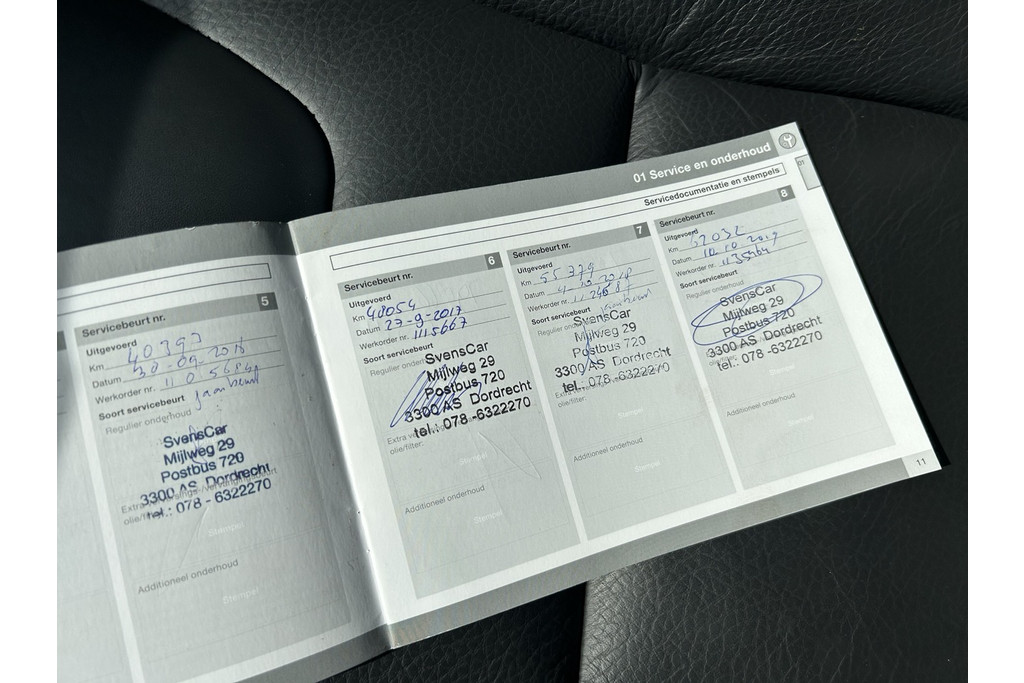 01 Service en onderhoud
01
Servicedocumentatie en stempels
Servicebeurt nr.
5
Uitgevoerd
Km 40393
Datum 30-09-2016
Werkorder nr.
Soort servicebeurt Jaarbeurt
Regulier onderhoud
SvensCar
Mijlweg 29
Postbus 720
3300 AS Dordrecht
tel.: 078 - 6322270
Extra
olie/filter:
Stempel
Additioneel onderhoud
Stempel
Servicebeurt nr.
6
Uitgevoerd
Km 48054
Datum 27-9-2017
Werkorder nr. 1115667
Soort servicebeurt
Regulier onderhoud
SvensCar
Mijlweg 29
Postbus 720
3300 AS Dordrecht
tel.: 078 -6322270
Extra
olie/filter:
Stempel
Additioneel onderhoud
Stempel
Servicebeurt nr.
7
Uitgevoerd
Km 55379
Datum
Werkorder nr.
Soort servicebeurt Jaarbeurt
Regulier
SvensCar
Mijlweg 29
Postbus 720
3300 AS Dordrecht
tel.: 078 -6322270
Extra
olie/filter:
Stempel
Additioneel onderhoud
Stempel
Servicebeurt nr.
8
Uitgevoerd
Km
Datum
Werkorder nr.
Soort servicebeurt
Regulier onderhoud
SvensCar
Mijlweg 29
Postbus 720
3300 AS Dordrecht
tel.: 078 -6322270
Additioneel onderhoud
Stempel
11